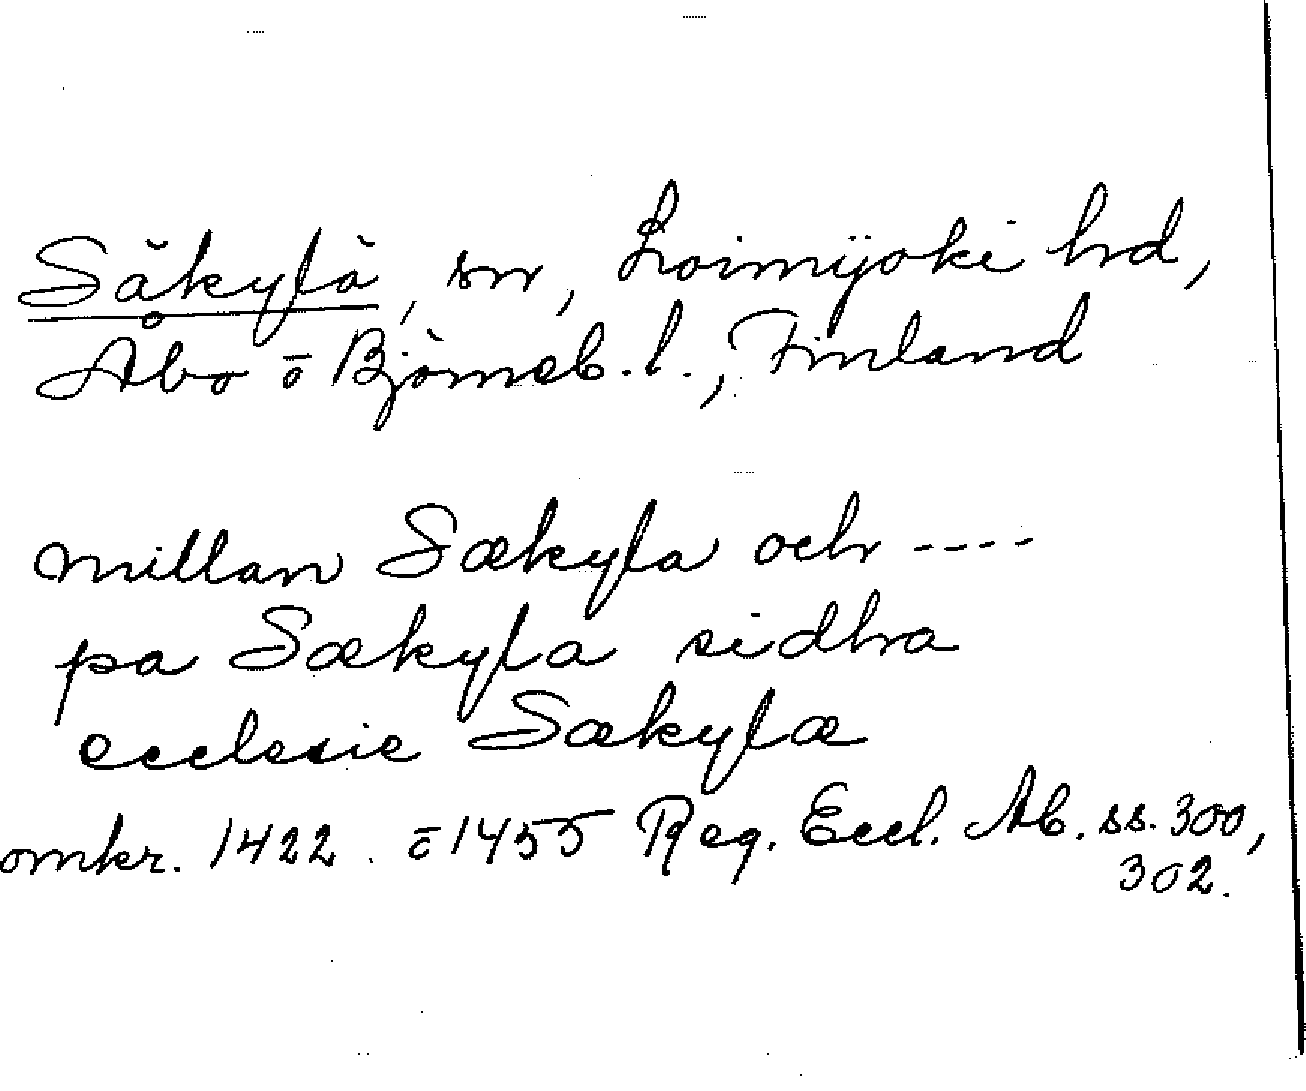 Säkylä, sn, Loimijoki hd,
Åbo o Björneb. l., Finland
millan Sækyla och ----
pa Sækyla sidhra
ecclesie Sækylæ
omkr. 1422. o 1455 Reg. Eccl. Ab. ss. 300,
302.